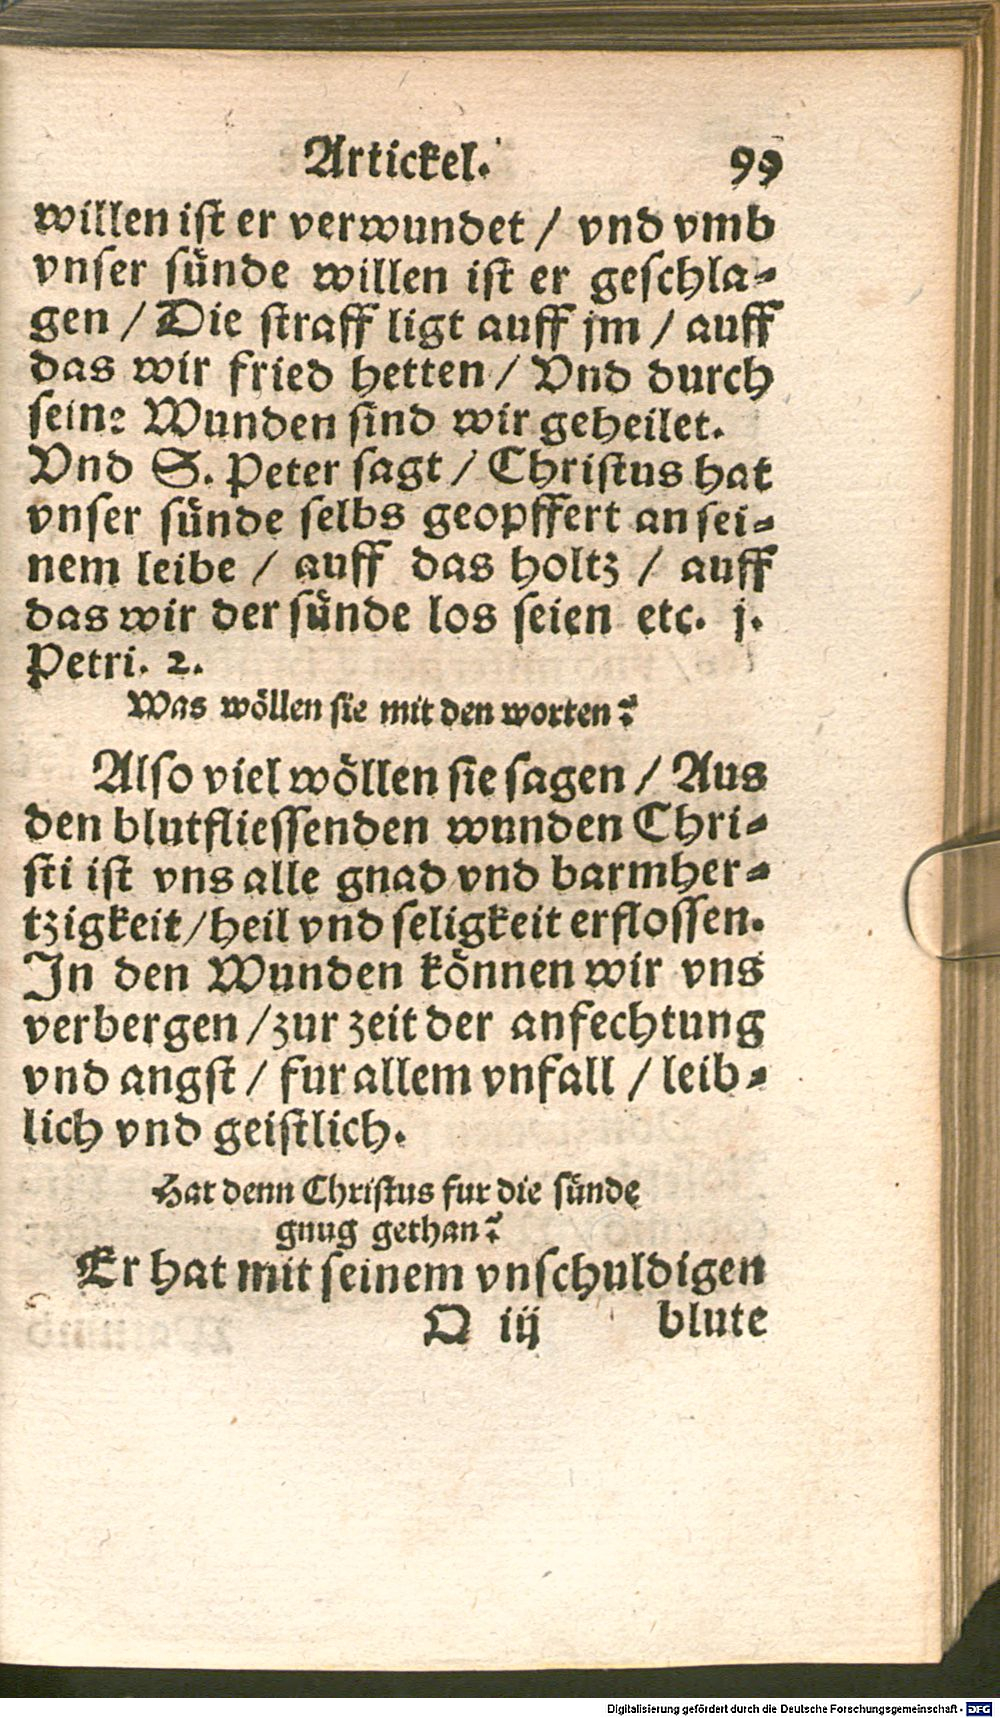 Artickel. 99
willen ist er verwundet / vnd vmb
vnser sünde willen ist er geschla-
gen / Die straff ligt auff jm / auff
das wir fried hetten / Vnd durch
seine Wunden sind wir geheilet.
Vnd S. Peter sagt / Christus hat
vnser sünde selbs geopffert an sei-
nem leibe / auff das holtz / auff
das wir der sünde los seien etc. j.
Petri. 2.
Was wöllen sie mit den worten?
Also viel wöllen sie sagen / Aus
den blutfliessenden wunden Chri-
sti ist vns alle gnad vnd barmher-
tzigkeit / heil vnd seligkeit erflossen.
In den Wunden können wir vns
verbergen / zur zeit der anfechtung
vnd angst / fur allem vnfall / leib-
lich vnd geistlich.
Hat denn Christus fur die sünde
gnug gethan?
Er hat mit seinem vnschuldigen
O iij blute
Digitalisierung gefördert durch die Deutsche Forschungsgemeinschaft - DFG